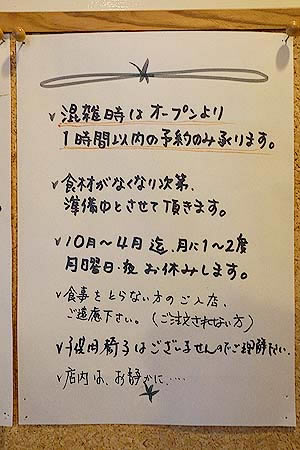 混雑時はオープンより
1時間以内の予約のみ承ります。
食材がなくなり次第、
準備中とさせて頂きます。
10月〜4月迄、月に1〜2度
月曜日・夜 お休みします。
食事をとらない方のご入店、
ご遠慮下さい。(ご注文されない方)
子供用椅子はございませんのでご理解下さい。
店内は、お静かに....